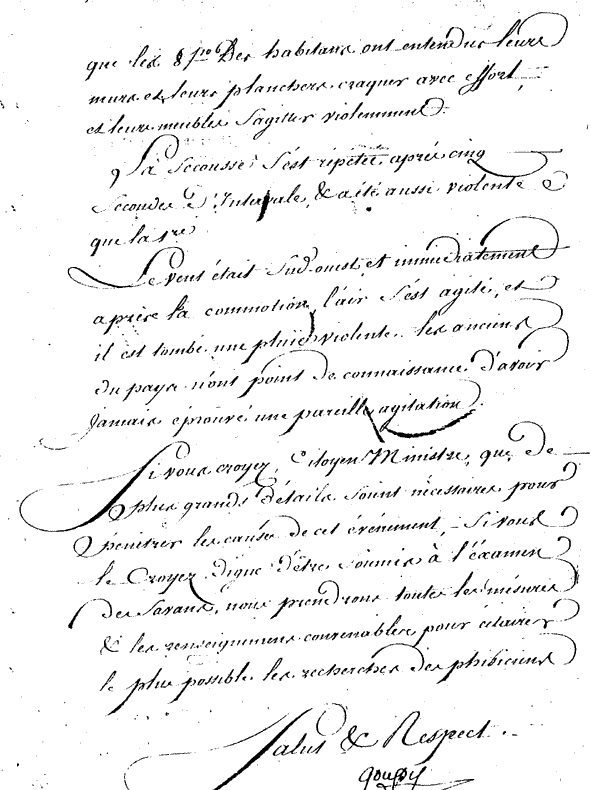 que les 8 pro 6 Des habitans ont entendus leurs
murs et leurs planchers craquer avec effort
et leurs meubles s'agiter violemment.
La Secousse s'est répétée après cinq
Secondes d'Intervale, & a été aussi violente
que la 1re
Le vent était Sud-ouest et immédiatement
après la commotion, l'air s'est agité, et
il est tombé une pluie violente. les anciens
du pays n'ont point de connaissance d'avoir
Jamais éprouvé une pareille agitation.
Si vous croyez, Citoyen Ministre, que de
plus grands détails soient nécessaires pour
pénétrer les causes de cet événement, Si vous
le Croyez digne d'être soumis à l'éxamen
des Savans, nous prendrons toutes les mésures
& les renseignemens convenables pour éclairer
le plus possible les recherches des phisiciens
Salut & Respect.
goupy